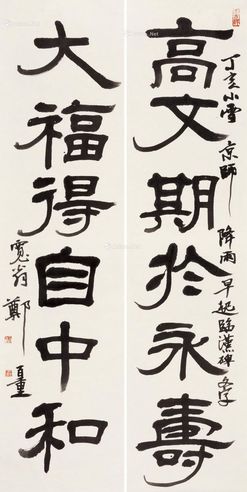 高文期於永壽
丁亥小雪 京師降雨 早起臨漢碑
大福得自中和
寬翁 鄭百重